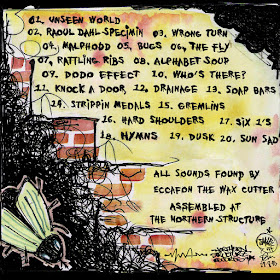 01. UNSEEN WORLD
02. RAOUL DAHL-SPECIMIN 03. WRONG TURN
04. MALPHODD 05. BUGS 06. THE FLY
07. RATTLING RIBS 08. ALPHABET SOUP
09. DODO EFFECT 10. WHO'S THERE?
11. KNOCK A DOOR, 12. DRAINAGE 13. SOAP BARS
14. STRIPPIN MEDALS 15. GREMLINS
16. HARD SHOULDERS 17. SIX 1'S
18. HYMNS 19. DUSK 20. SUN SAD
ALL SOUNDS FOUND BY
ECCAFON THE WAX CUTTER
ASSEMBLED AT
THE NORTHERN STRUCTURE